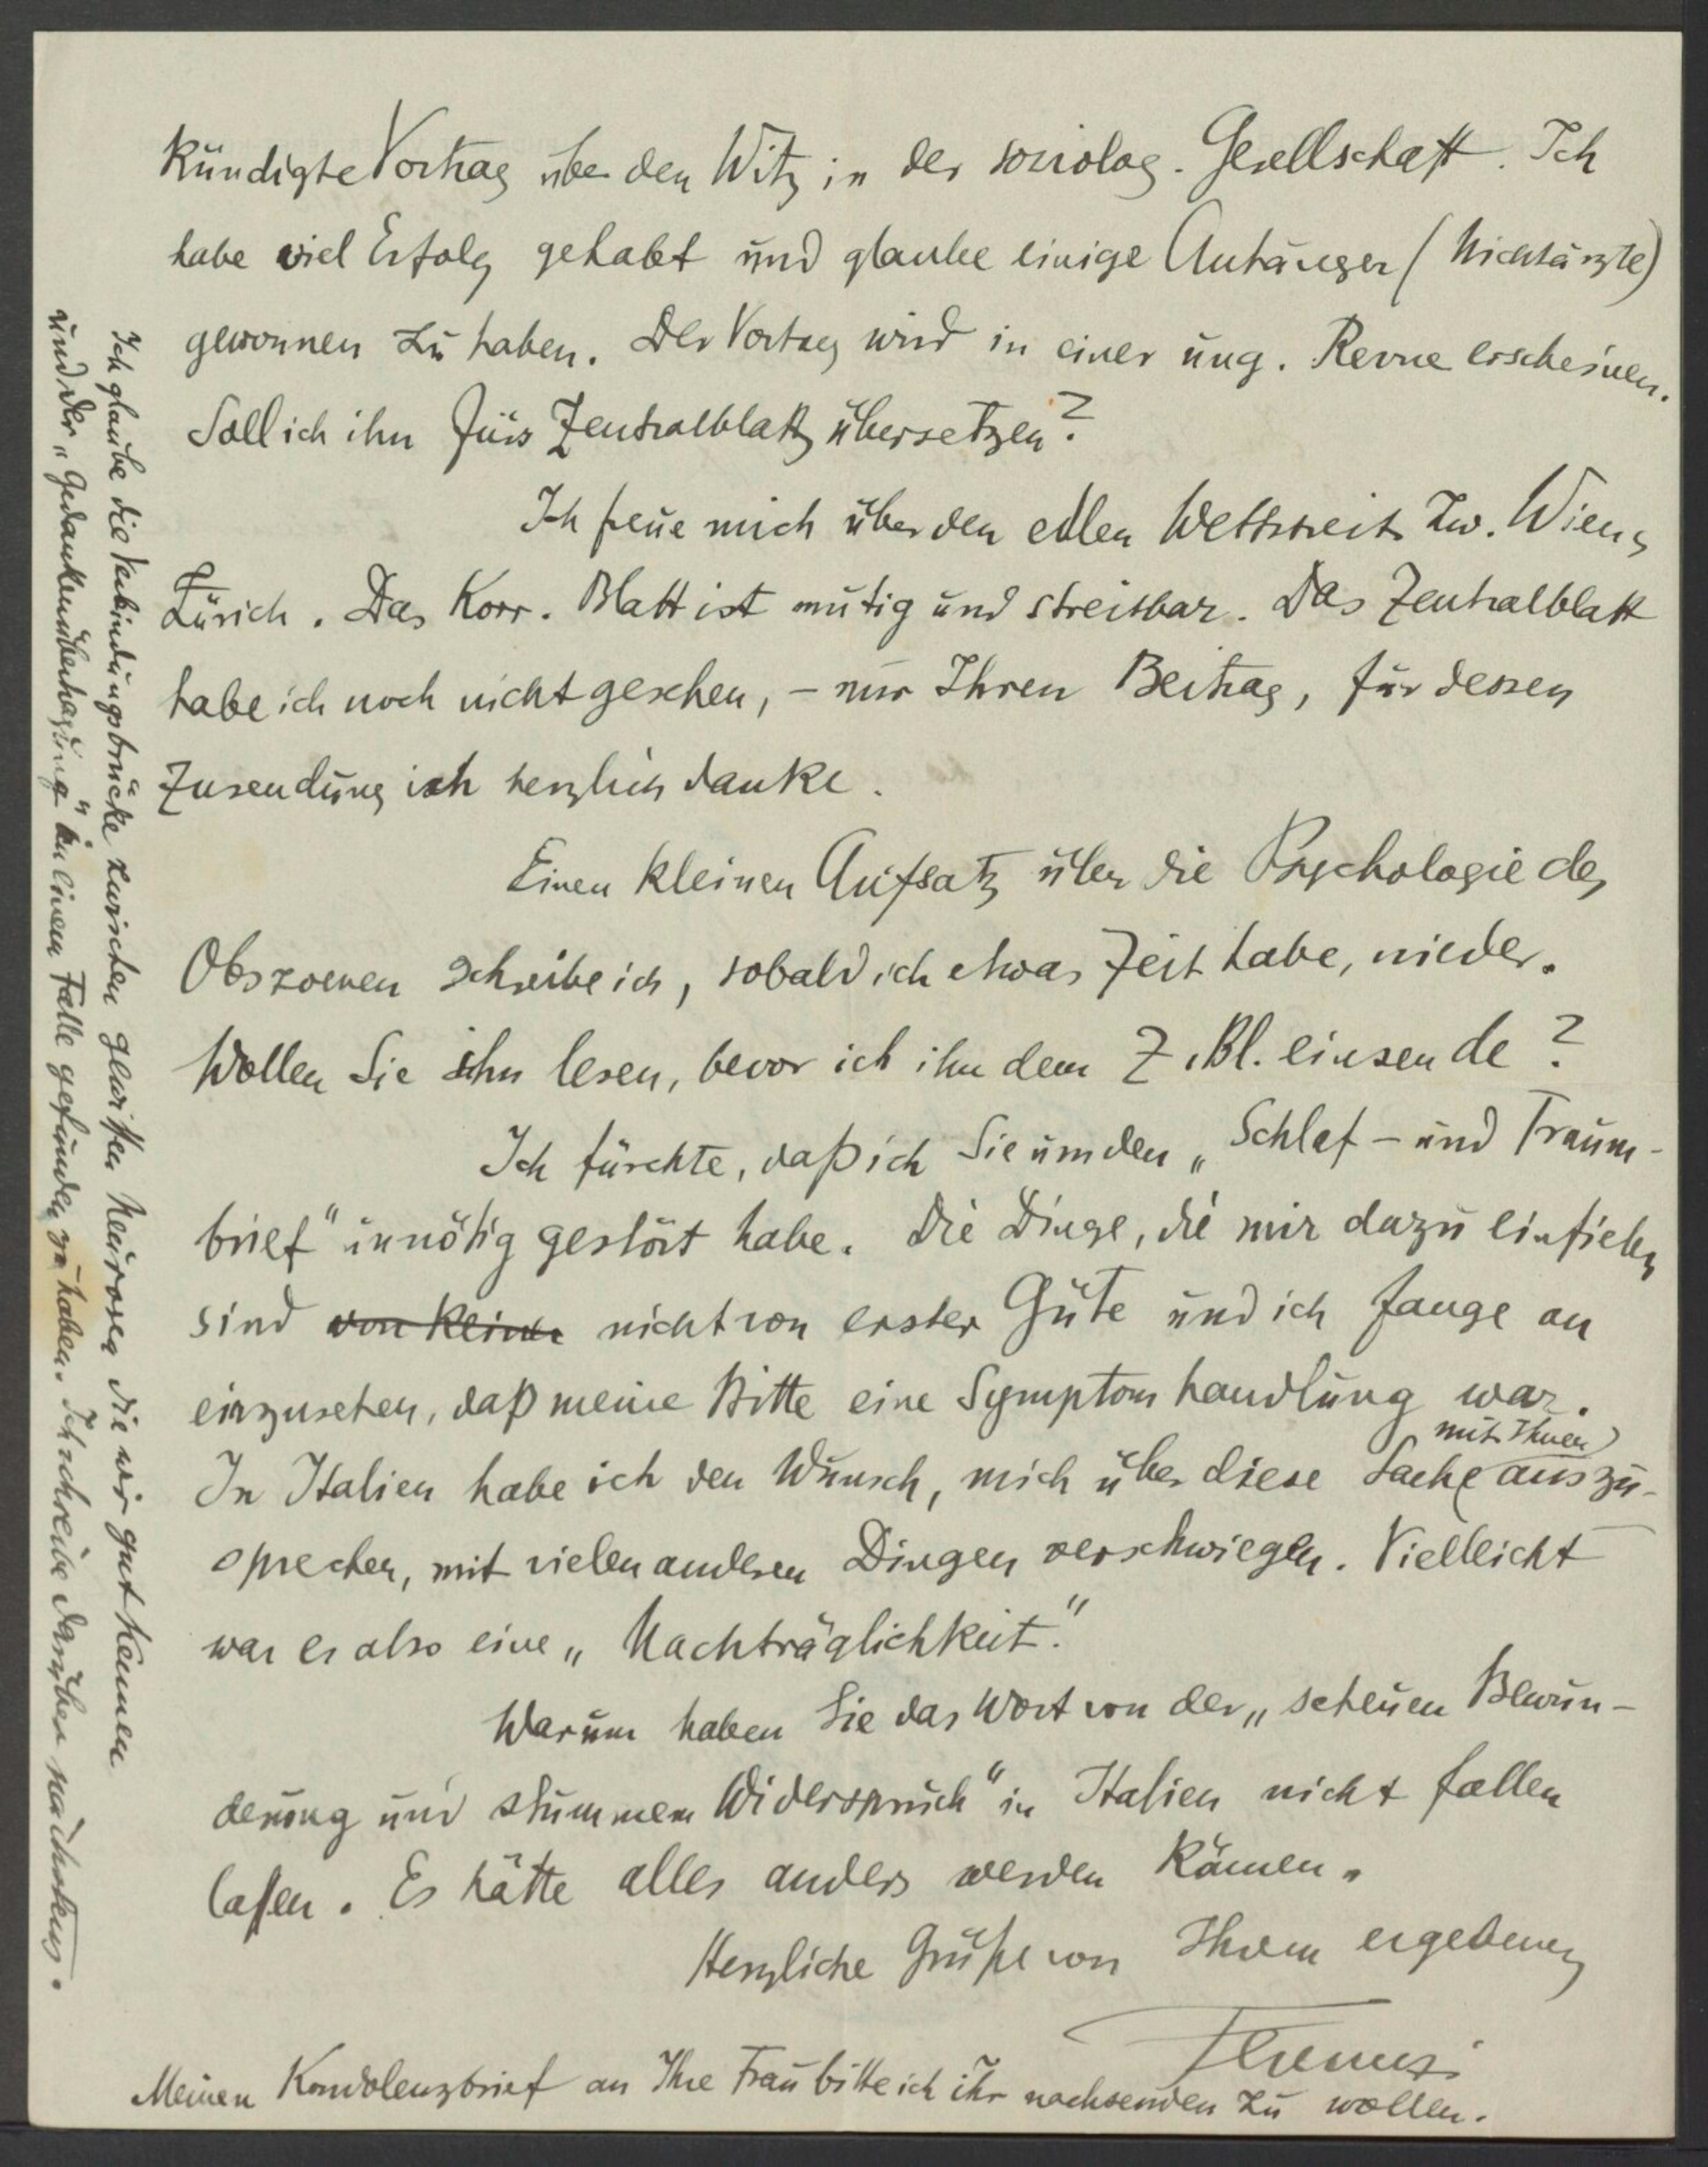 kündigte Vortrag über den Witz in der soziolog. Gesellschaft. Ich
habe viel Erfolg gehabt und glaube einige Anhänger (Nichtärzte)
gewonnen zu haben. Der Vortrag wird in einer ung. Revue erscheinen.
Soll ich ihn fürs Zentralblatt übersetzen?
Ich freue mich über den edlen Wettstreit zw. Wien
Zürich. Das Korr. Blatt ist mutig und streitbar. Das Zentralblatt
habe ich noch nicht gesehen, – nur Ihren Beitrag, für dessen
Zusendung ich herzlich danke.
Einen kleinen Aufsatz über die Psychologie des
Obszoenen schreibe ich, sobald ich etwas Zeit habe, nieder.
Wollen Sie ihn lesen, bevor ich ihn dem Z. Bl. einsende?
Ich fürchte, daß ich Sie um den „Schlaf- und Traum-
brief“ unnötig gestört habe. Die Dinge, die mir dazu einfielen
sind von keiner nicht von erster Güte und ich fange an
einzusehen, daß meine Bitte eine Symptomhandlung war.
mit Ihnen
In Italien habe ich den Wunsch, mich über diese Sache auszu-
sprechen, mit vielen anderen Dingen verschwiegen. Vielleicht
war es also eine „Nachträglichkeit.“
Warum haben Sie das Wort von der „scheuen Bewun-
derung und stummen Widerspruch“ in Italien nicht fallen
lassen. Es hätte alles anders werden können.
Herzliche Grüße von Ihrem ergebenen
Ferenczi
Meinen Kondolenzbrief an Ihre Frau bitte ich ihr nachsenden zu wollen.
Ich glaube die Verbindungsbrücke zwischen gewissen Neurosen die wir gut kennen
und der „Gedankenübertragung“ in einem Falle gefunden zu haben. Ich schreibe darüber nächstens.